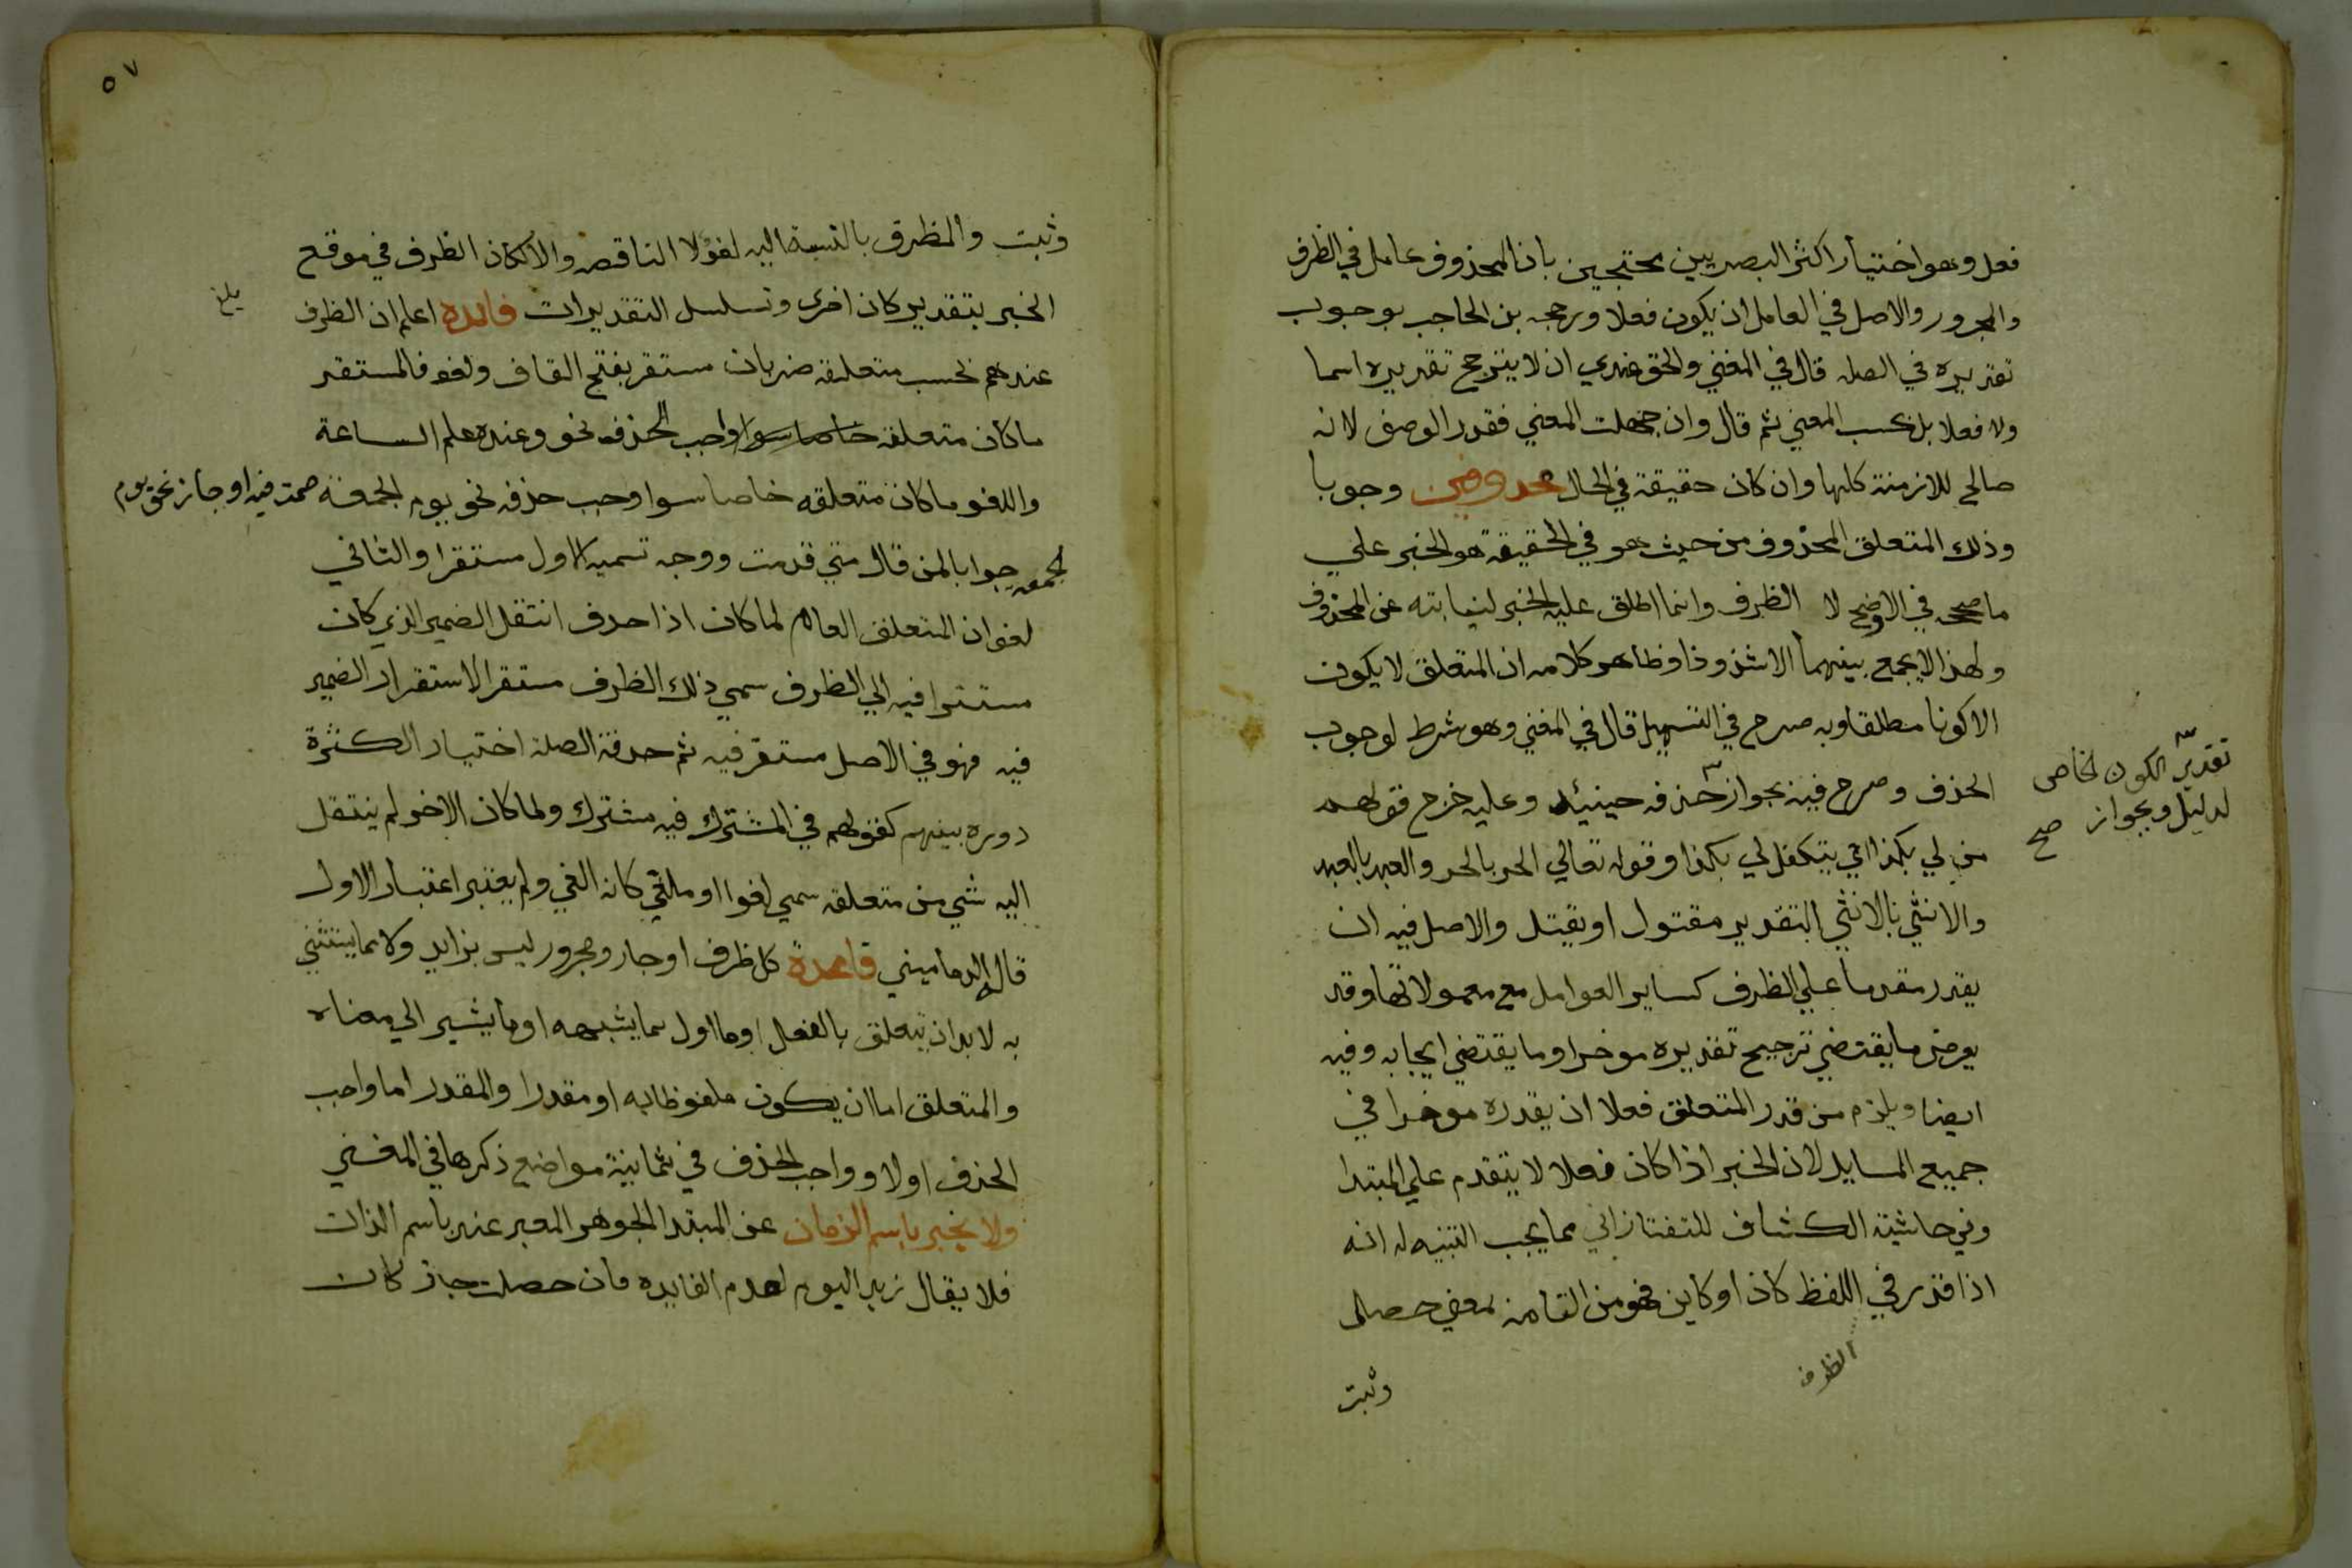 فعل وهو اختيار اكثر البصريين محتجين بان المحذوف عامل في الظرف
والمجرور والاصل في العامل ان يكون فعلا ورجحه بن الحاجب بوجوب
تقديره في الصله قال في المغني والحق عندي ان لا يترجح تقديره اسما
ولا فعلا بل بحسب المعني ثم قال وان جهلت المعني فقدر الوصف لانه
صالح للازمنة كلها وان كان حقيقة في الحال محذوفين وجوبا
وذلك المتعلق المحذوف من حيث هو في الحقيقة هو الخبر علي
ما صححه في الاوضح لا الظرف وانما اطلق عليه الخبر لنيابته عن المحذوف
ولهذا لا يجمع بينهما الا شذوذا وظاهر كلامه ان المتعلق لا يكون
الا كونا مطلقا وبه صرح في التسهيل قال في المغني وهو شرط لوجوب
الحذف وصرح فيه بجواز حذفه حينيئد وعليه خرج قولهم
تقدير الكون الخاص
لدليل وبجواز صح
من لي بكذا اي يتكفل لي بكذا وقوله تعالي الحر بالحر والعبد بالعبد
والانثي بالانثي التقدير مقتول او يقتل والاصل فيه ان
يقدر مقدما علي الظرف كساير العوامل مع معمولاتها وقد
يعرض ما يقتضي ترجيح تقديره موخرا وما يقتضي ايجابه وفيه
ايضا ويلزم من قدر المتعلق فعلا ان يقدره موخرا في
جميع المسايل لان الخبر اذا كان فعلا لا يتقدم علي المبتدا
وفي حاشية الكشاف للتفتازاني مما يجب التنبيه له انه
اذا قدر في اللفظ كان او كاين فهو من التامة بمعني حصل
الظرف
وثبت
٥٧
وثبت والظرف بالنسبة اليه لغو لا الناقصه والا لكان الظرف في موقع
الخبر بتقدير كان اخري وتسلسل التقديرات فايده اعلم ان الظرف
بلغ
عندهم بحسب متعلقه ضربان مستقر بفتح القاف ولغو فالمستقر
ما كان متعلقه خاصا سوا واجب الحذف نحو وعنده علم الساعة
واللغو ما كان متعلقه خاصا سوا وجب حذفه نحو يوم الجمعة صمت فيه او جاز نحو يوم
الجمعة جوابا لمن قال متي قدمت ووجه تسميه الاول مستقرا والثاني
لغو ان المتعلق العام لما كان اذا حدف انتقل الضمير الذي كان
مستترا فيه الي الظرف سمي ذلك الظرف مستقرا لاستقرار الضمير
فيه فهو في الاصل مستقر فيه ثم حدفة الصلة اختيار الكثرة
دوره بينهم كقولهم في المشترك فيه مشترك ولما كان الاخر لم ينتقل
اليه شي من متعلقه سمي لغوا او ملغي كانه الغي ولم يعتبر اعتبار الاول
قاله الدماميني قاعدة كل ظرف او جار ومجرور ليس بزايد ولا مما يستثني
به لا بد ان يتعلق بالفعل او ما اول بما يشبهه او ما يشير الي معناه
والمتعلق اما ان يكون ملفوظا به او مقدرا والمقدر اما واجب
الحذف اولا وواجب الحذف في ثمانية مواضع ذكرها في المغني
ولا يخبر باسم الزمان عن المبتدا الجوهر المعبر عنه باسم الذات
فلا يقال زيد اليوم لعدم الفايده فان حصلت جاز كان